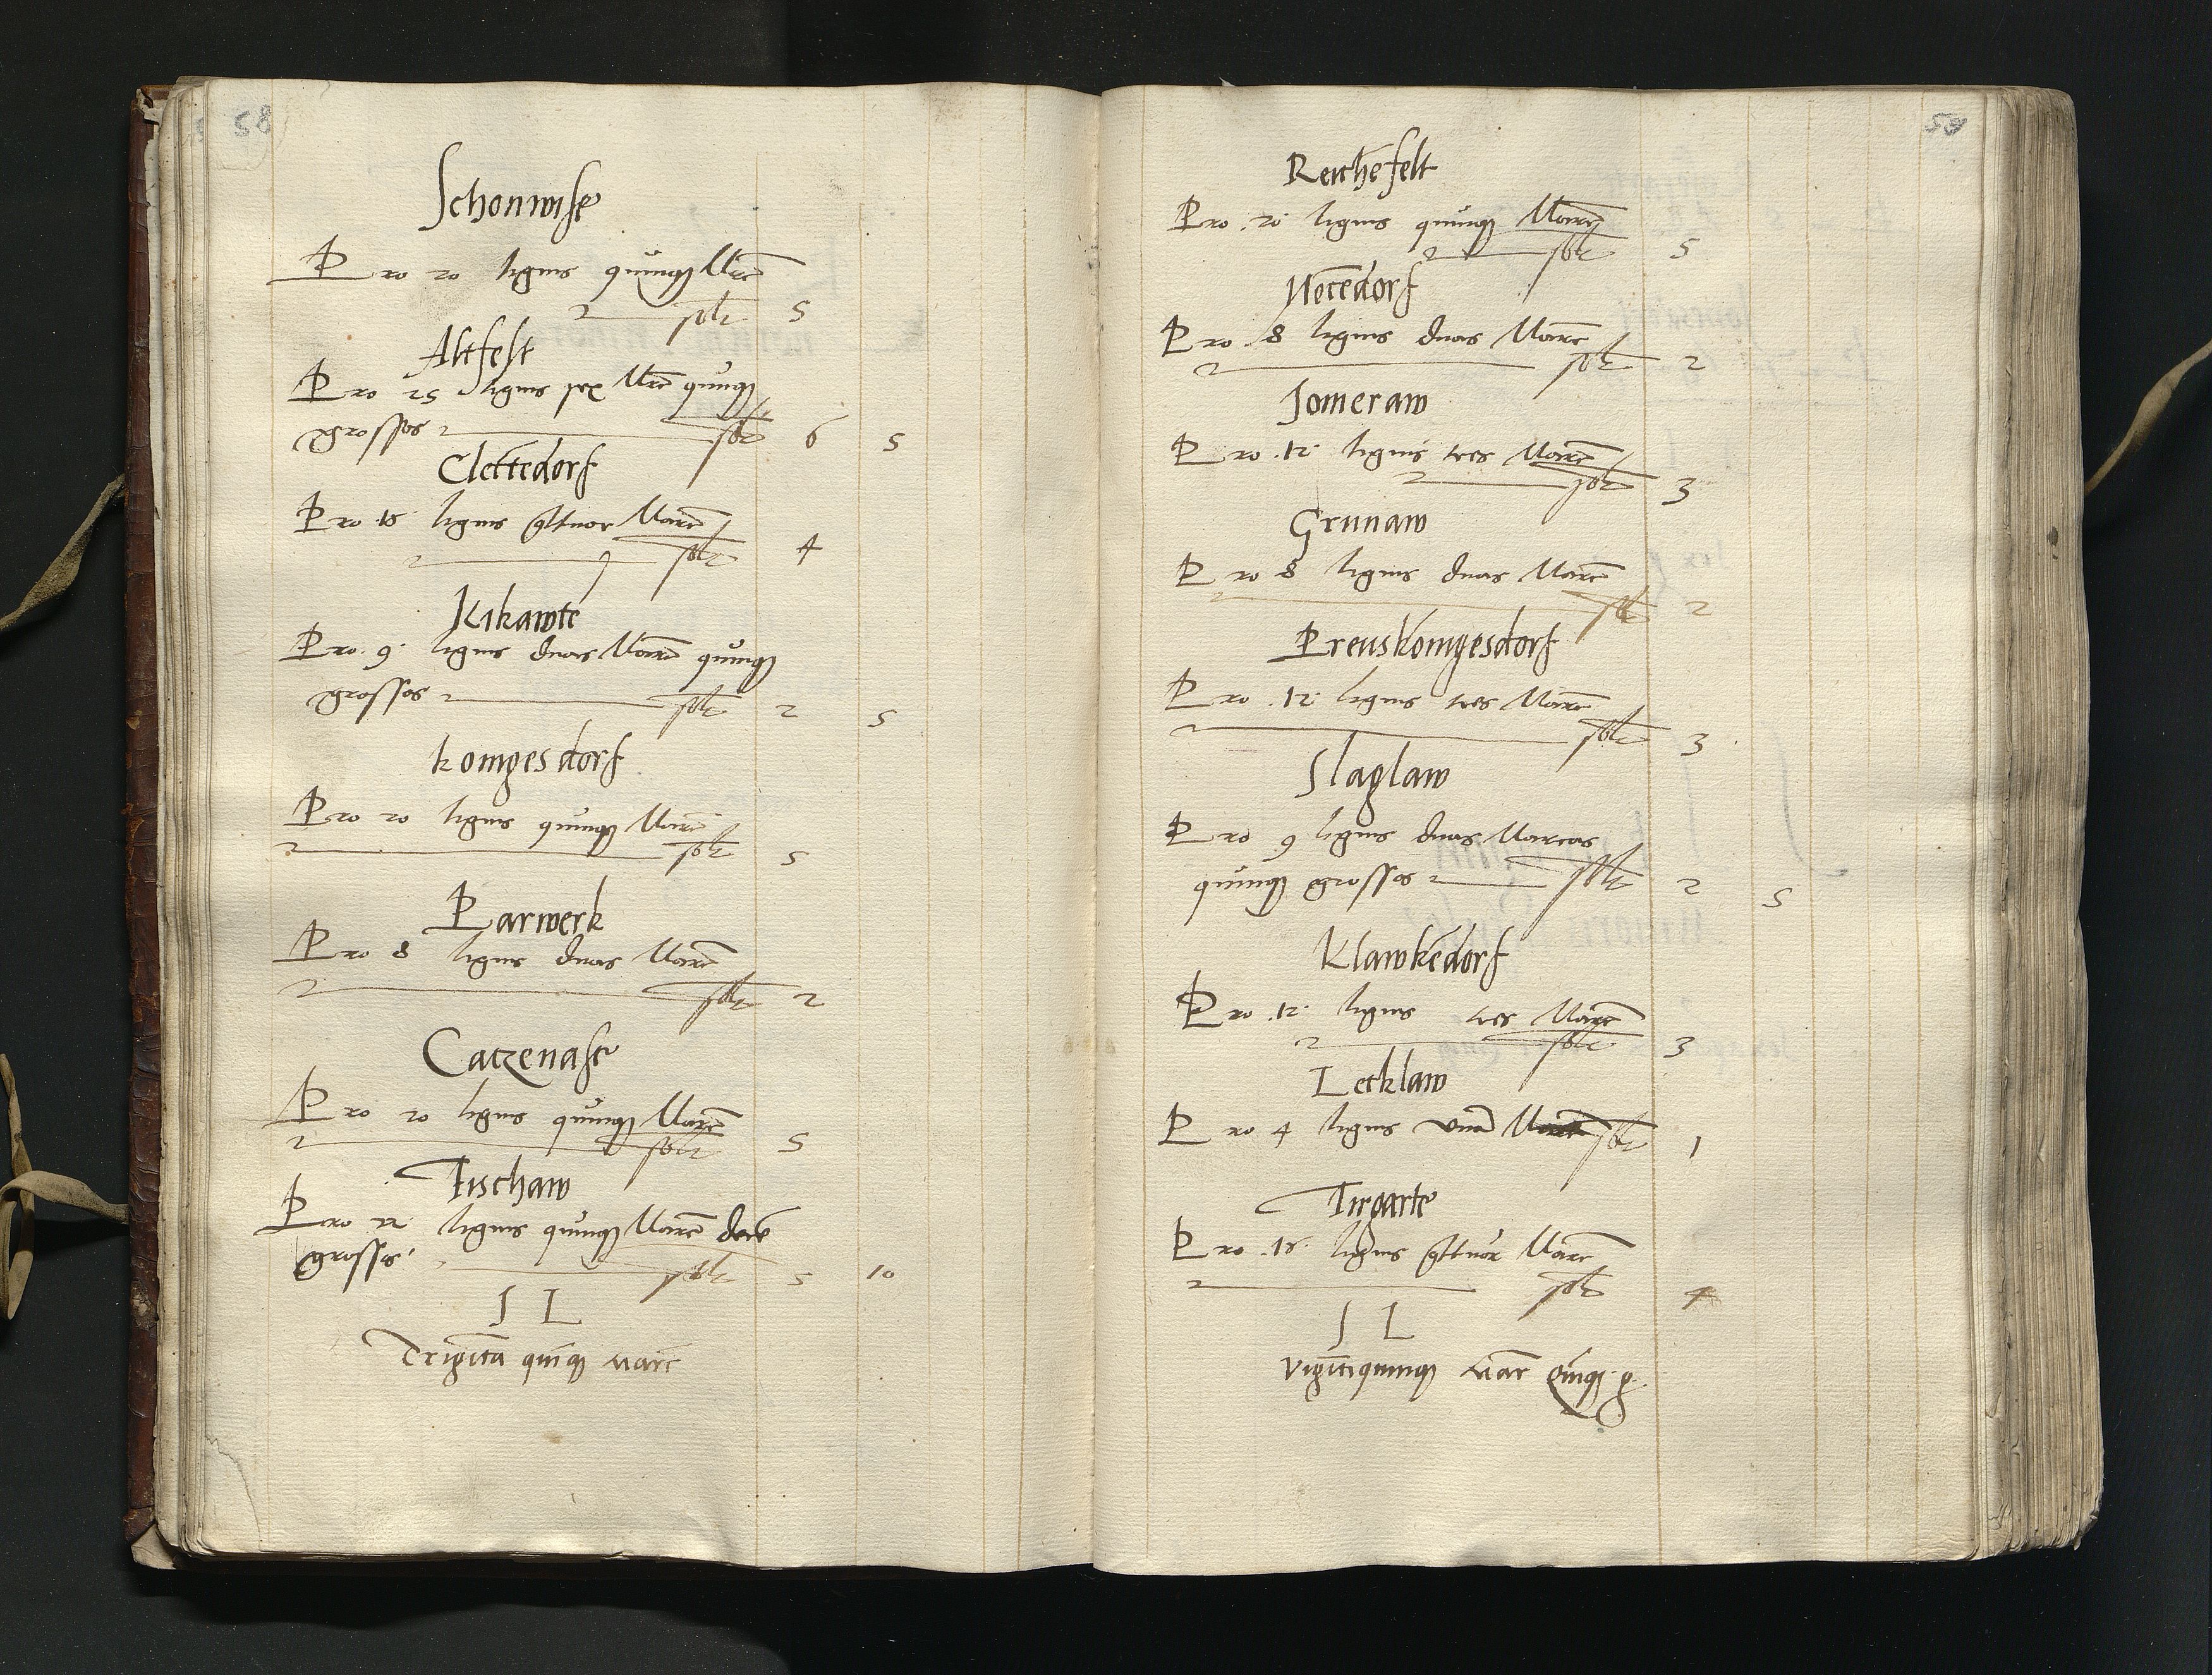 58
Schonwise
Pro 20 lignis quinqȝ Mrc̄
solt 5
Altfelt
Pro 25 lignis sex Mrc̄ quinqȝ
grossos solt 6 5
Clettēdorf
Pro 16 lignis q̄ttuor Marc̄
solt 4
Kikawte
Pro 9 lignis duas Marc̄ quinqȝ
grossos solt 2 5
konigesdorf
Pro 20 lignis quinqȝ Marc̄
solt 5
Parwerk
Pro 8 lignis duas Marc̄
solt 2
Catzenase
Pro 20 lignis quinqȝ Marc̄
solt 5
Fischaw
Pro 22 lignis quinqȝ Marc̄ decē
grossos solt 5 10
S L
Trigīta quīqȝ marc̄
59
Reichēfelt
Pro 20 lignis quinqȝ Marc̄
solt 5
Notēdorf
Pro 8 lignis duas Marc̄
solt 2
Someraw
Pro 12 lignis tres Marc̄
solt 3
Grunaw
Pro 8 lignis duas Marc̄
solt 2
Preuskonigesdorf
Pro 12 lignis tres Marc̄
solt 3
Slaglaw
Pro 9 lignis duas Marcas
quinqȝ grossos solt 2 5
Klawkēdorf
Pro 12 lignis tres Marc̄
solt 3
Lecklaw
Pro 4 lignis vnā solt 1
Tirgarte
Pro 16 lignis q̄ttuor Marc̄
solt 4
S L
vigītiquinqȝ marc̄ quīqȝ g